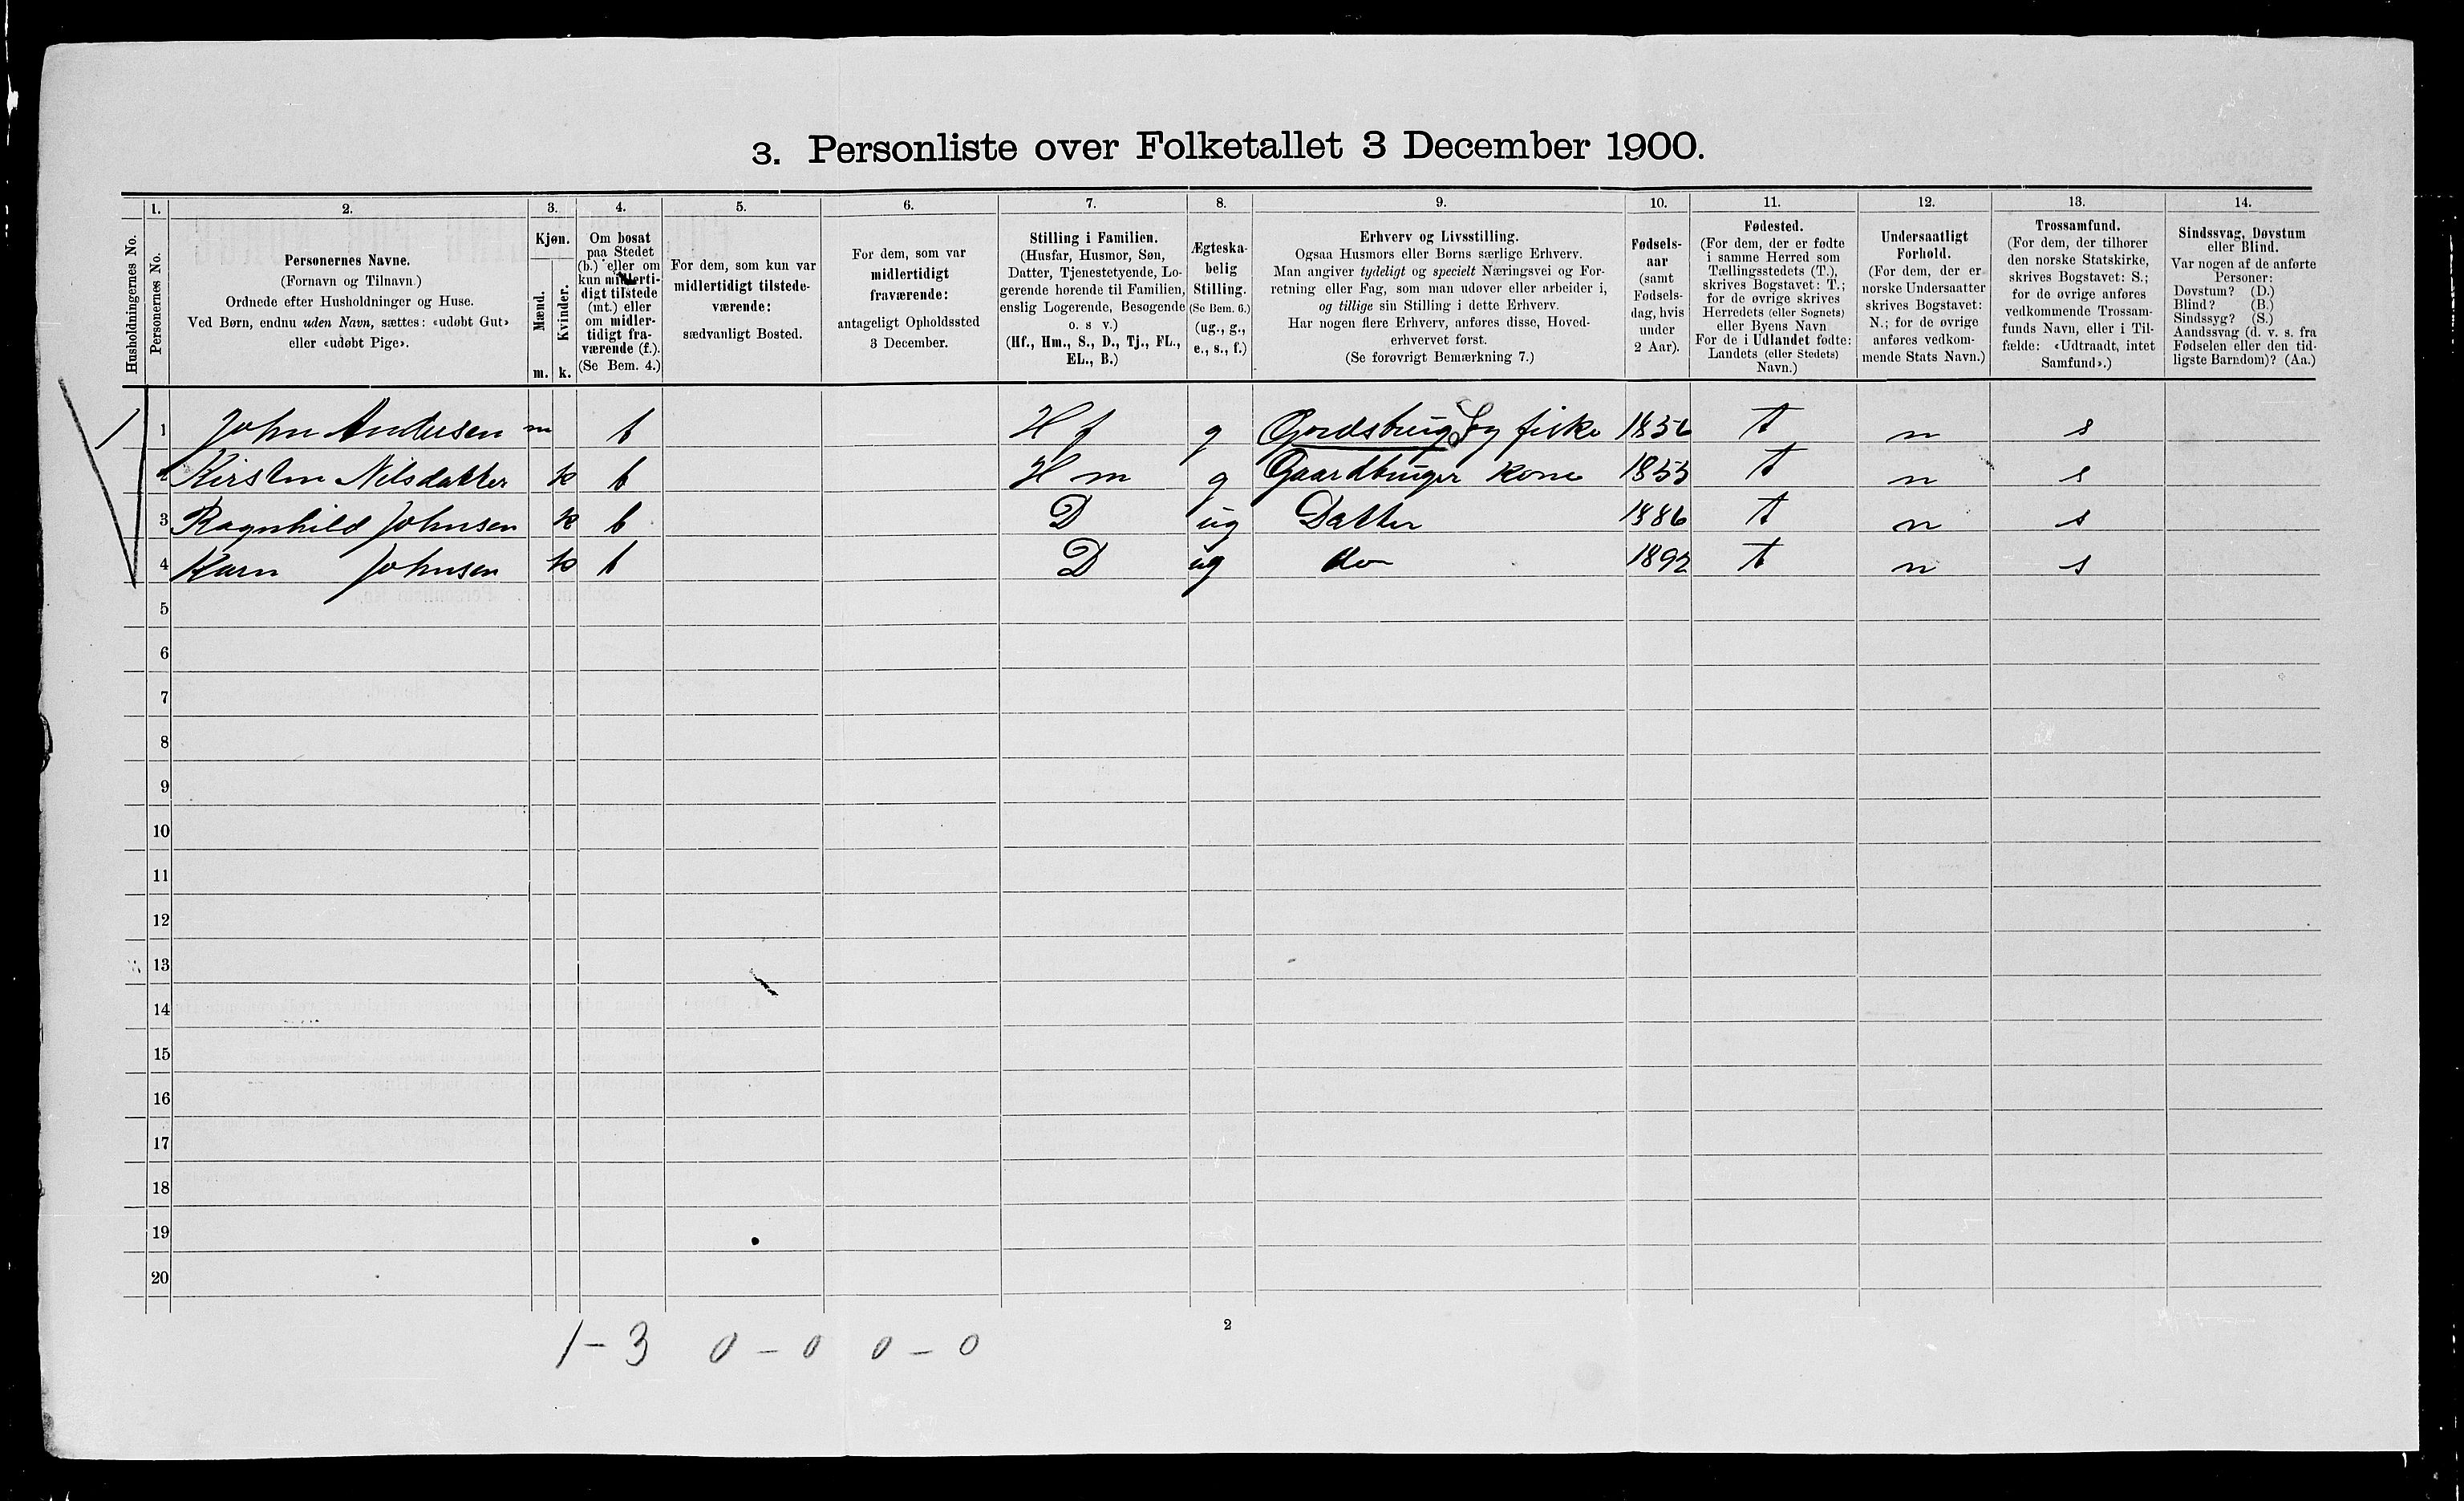 3. Personliste over Folketallet 3 December 1900.
1. 2. 3. 4. 5. 6. 7. 8. 9. 10. 11. 12. 13. 14.
Husholdningernes No.
Personernes No.
Personernes Navne.
(Fornavn og Tilnavn.)
Ordnede efter Husholdninger og Huse.
Ved Børn, endnu uden Navn, sættes: «udøbt Gut»
eller «udøbt Pige».
Kjøn.
Mænd.
Kvinder.
m. k.
Om bosat
paa Stedet
(b.) eller om
kun midlerti-
digt tilstede
(mt.) eller
om midler-
tidigt fra-
værende (f.).
(Se Bem. 4.)
For dem, som kun var
midlertidigt tilstede-
værende:
sædvanligt Bosted.
For dem, som var
midlertidigt
fraværende:
antageligt Opholdssted
3 December.
Stilling i Familien.
(Husfar, Husmor, Søn,
Datter, Tjenestetyende, Lo-
gerende hørende til Familien,
enslig Logerende, Besøgende
o. s v.)
(Hf., Hm., S., D., Tj., FL.,
EL., B.)
Ægteska-
belig
Stilling.
(Se Bem. 6.)
(ug., g.,
e., s., f.)
Erhverv og Livsstilling.
Ogsaa Husmors eller Børns særlige Erhverv.
Man angiver tydeligt og specielt Næringsvei og For-
retning eller Fag, som man udøver eller arbeider i,
og tillige sin Stilling i dette Erhverv.
Har nogen flere Erhverv, anføres disse, Hoved-
erhvervet først.
(Se forøvrigt Bemærkning 7.)
Fødsels-
aar
(samt
Fødsels-
dag, hvis
under
2 Aar).
Fødested.
(For dem, der er fødte
i samme Herred som
Tællingsstedets (T.),
skrives Bogstavet: T.;
for de øvrige skrives
Herredets (eller Sognets)
eller Byens Navn.
For de i Udlandet fødte:
Landets (eller Stedets)
Navn.)
Undersaatligt
Forhold.
(For dem, der er
norske Undersaatter
skrives Bogstavet:
N.; for de øvrige
anføres vedkom-
mende Stats Navn.)
Trossamfund.
(For dem, der tilhører
den norske Statskirke,
skrives Bogstavet: S.;
for de øvrige anføres
vedkommende Trossam-
funds Navn, eller i Til-
fælde: «Udtraadt, intet
Samfund».)
Sindssvag, Døvstum
eller Blind.
Var nogen af de anførte
Personer:
Døvstum? (D.)
Blind? (B.)
Sindssyg? (S.)
Aandssvag (d. v. s. fra
Fødselen eller den tid-
ligste Barndom)? (Aa.)
1 1 John Andersen m b Hf g Gjordsbrug og fiske 1856 t n s
2 Kirsten Nilsdatter k b Hm g Gaardbruger kone 1853 t n s
3 Ragnhild Johnsen k b D ug Datter 1886 t n s
4 Karn Johnsen k b D ug do 1892 t n s
5
6
7
8
9
10
11
12
13
14
15
16
17
18
19
20
2
1-3 0-0 0-0